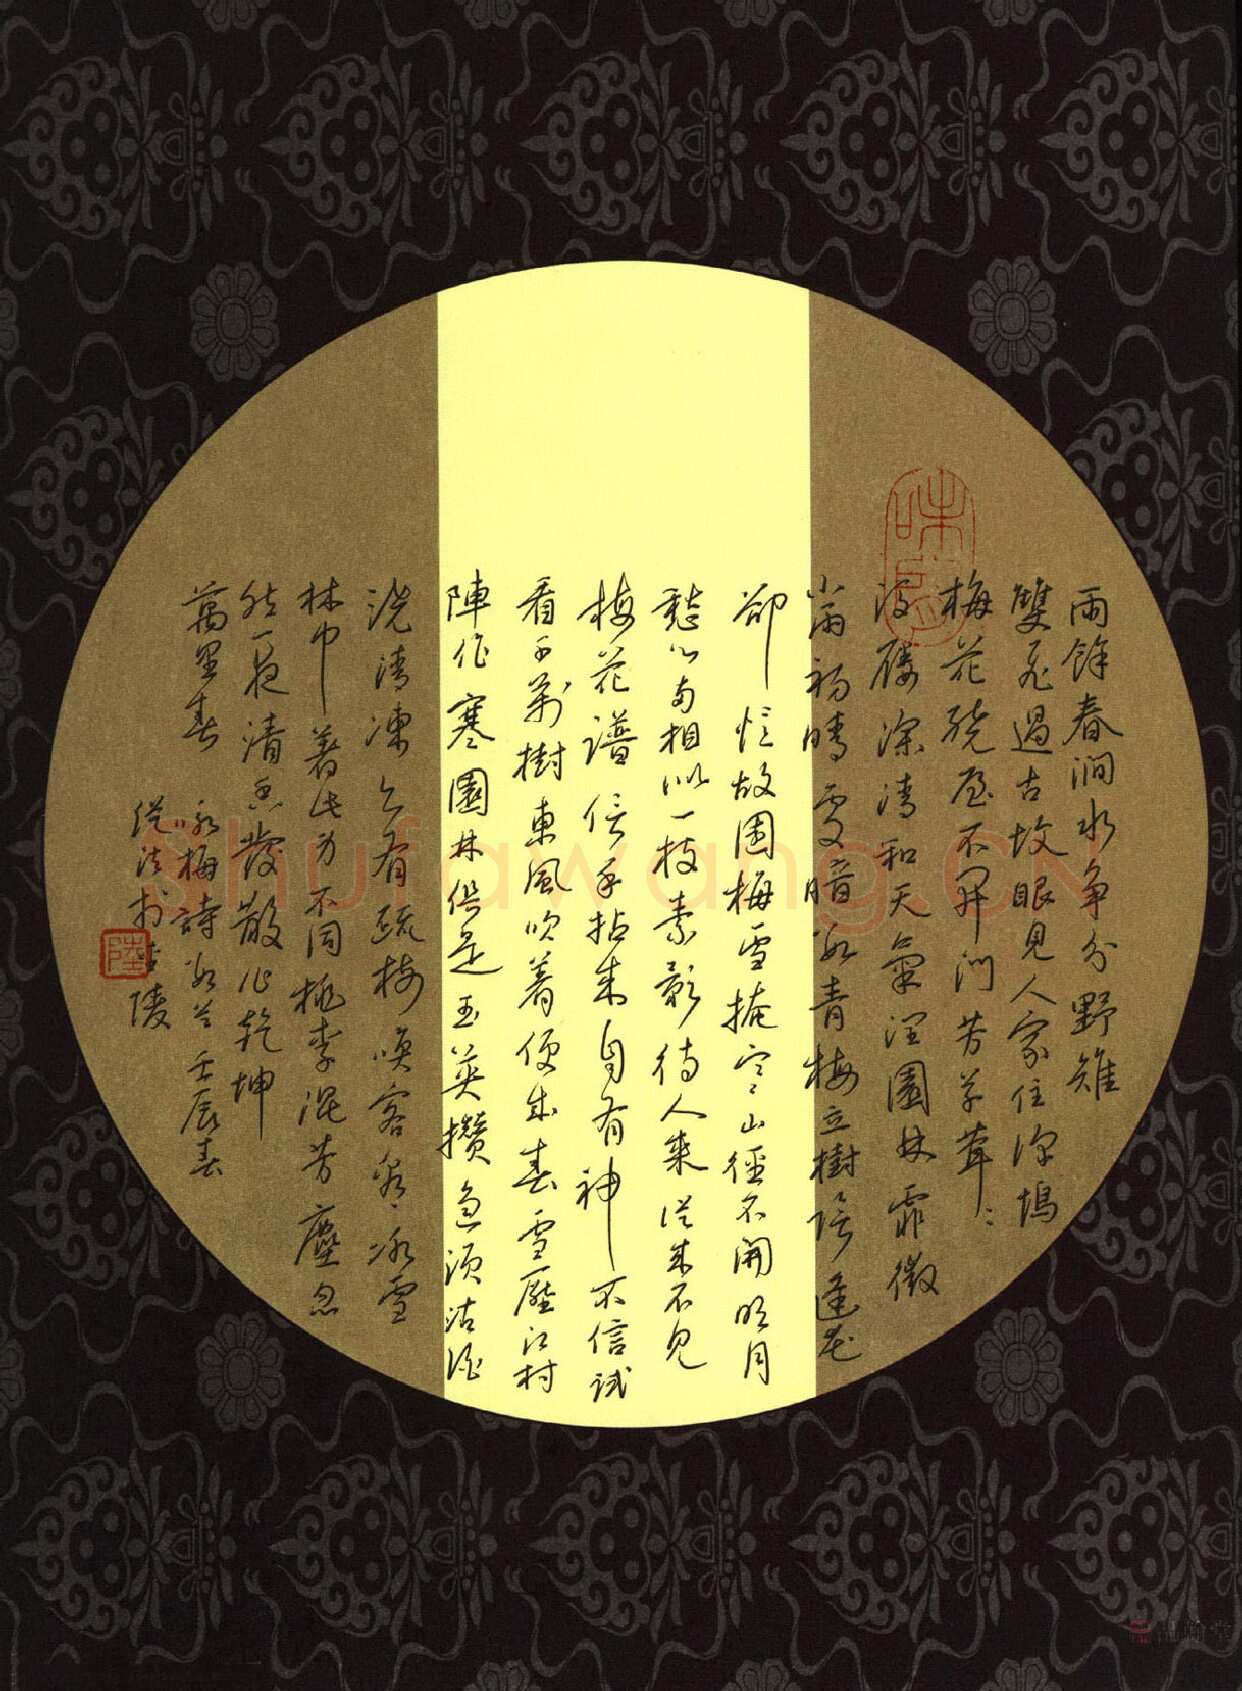 雨餘春澗水争分野雉
雙飛過古坟眼見人家住深塢
梅花繞屋不開門芳草茸〻
没屨深清和天氣潤園林霏微
小雨初晴處暗數青梅立樹陰逢花
却憶故園梅雪掩寒山徑不開明月
愁心兩相似一枝素影待人來從來不見
梅花譜信手拈來自有神不信試
看千萬樹東風吹着便成春雪壓江村
陣作寒園林俱是玉英攢急須沽酒
澆清凍亦有疏梅唤客看冰雪
林中著此身不同桃李混芳塵忽
然一夜清香發散作乾坤
萬里春
詠梅詩數首壬辰春
從法書 陵
陸
Shufawang.CN